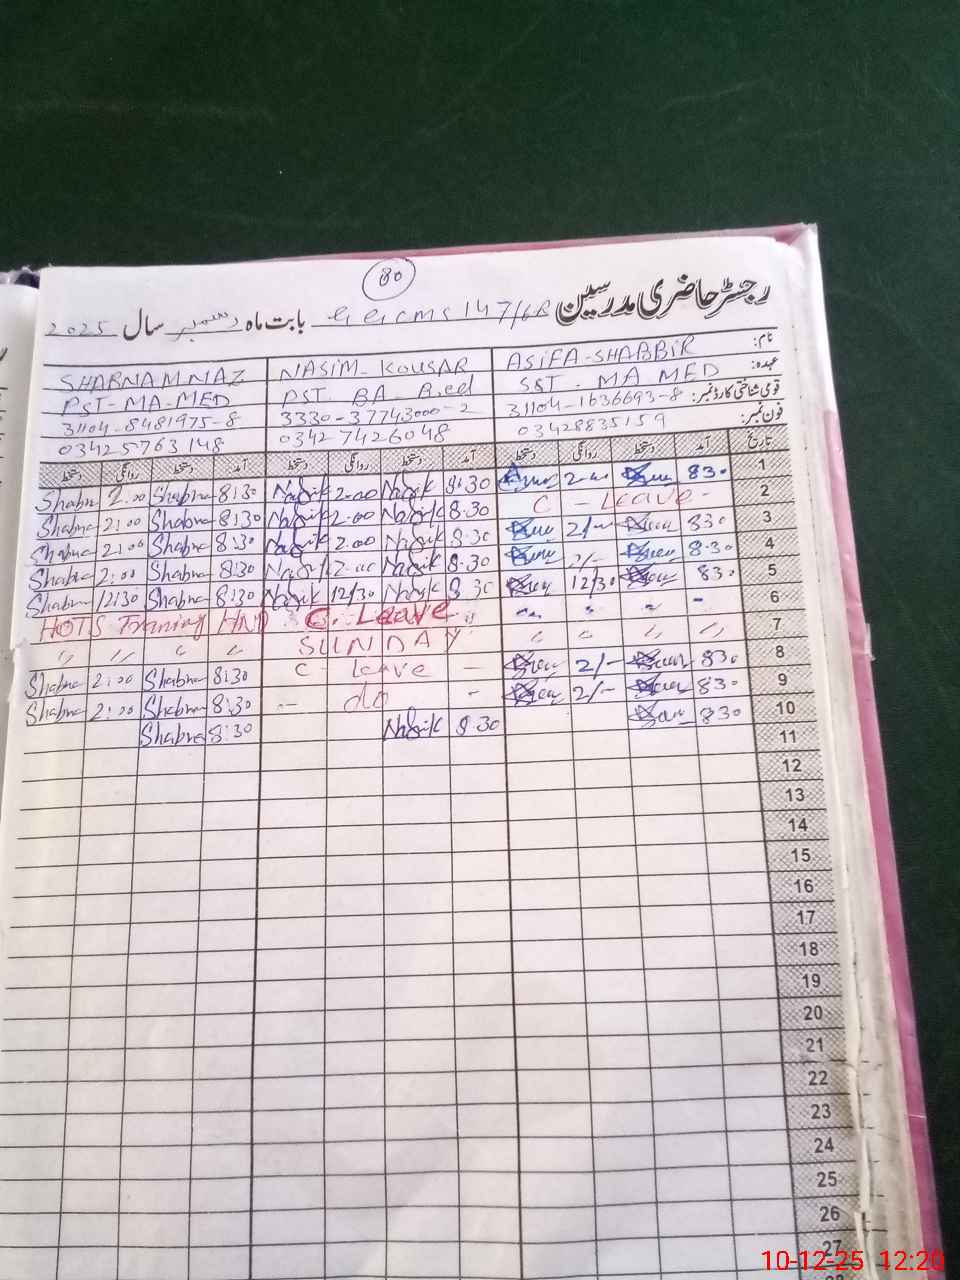 80
رجسٹر حاضری مدرسین GGCMS 147/6R بابت ماہ دسمبر سال 2025
نام: ASIFA-SHABBIR NASIM-KOUSAR SHABNAM NAZ
عہدہ: SST - MA MED PST BA B.ed PST-MA-MED
قومی شناختی کارڈ نمبر: 31104-1636693-8 3330-37743000-2 31104-8481975-8
فون نمبر: 03428835159 0342 7426048 03425763148
تاریخ آمد دستخط روانگی دستخط آمد دستخط روانگی دستخط آمد دستخط روانگی دستخط
Shabna 2.00 Shabna 8:30 2.00 8:30 2-00 830 1
Shabna 2:00 Shabna 8:30 2.00 8.30 C - Leave - 2
Shabna 2:00 Shabna 8:30 2.00 8.30 2/- 830 3
Shabna 2:00 Shabna 8:30 2.00 8.30 2/- 8.30 4
Shabna 12:30 Shabna 8:30 12/30 8.30 12/30 830 5
HOTS Traning HND C. Leave 6
〃 〃 〃 〃 SUNDAY 〃 〃 〃 〃 7
Shabna 2:00 Shabna 8:30 C - leave - 2/- 830 8
Shabna 2:00 Shabna 8:30 - do - 2/- 830 9
Shabna 8:30 8.30 830 10
11
12
13
14
15
16
17
18
19
20
21
22
23
24
25
26
27
10-12-25 12:20